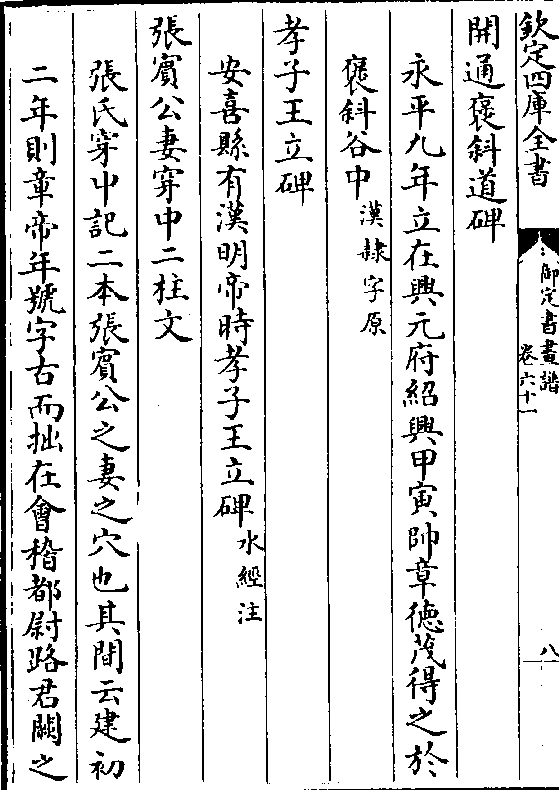 欽定四庫全書
御定書畫譜
卷六十一
八
開通褒斜道碑
永平九年立在興元府紹興甲寅帥章徳茂得之於
褒斜谷中漢隷字原
孝子王立碑
安喜縣有漢明帝時孝子王立碑水經注
張賔公妻穿中二柱文
張氏穿中記二本張賔公之妻之穴也其間云建初
二年則章帝年號字古而拙在會稽都尉路君闕之